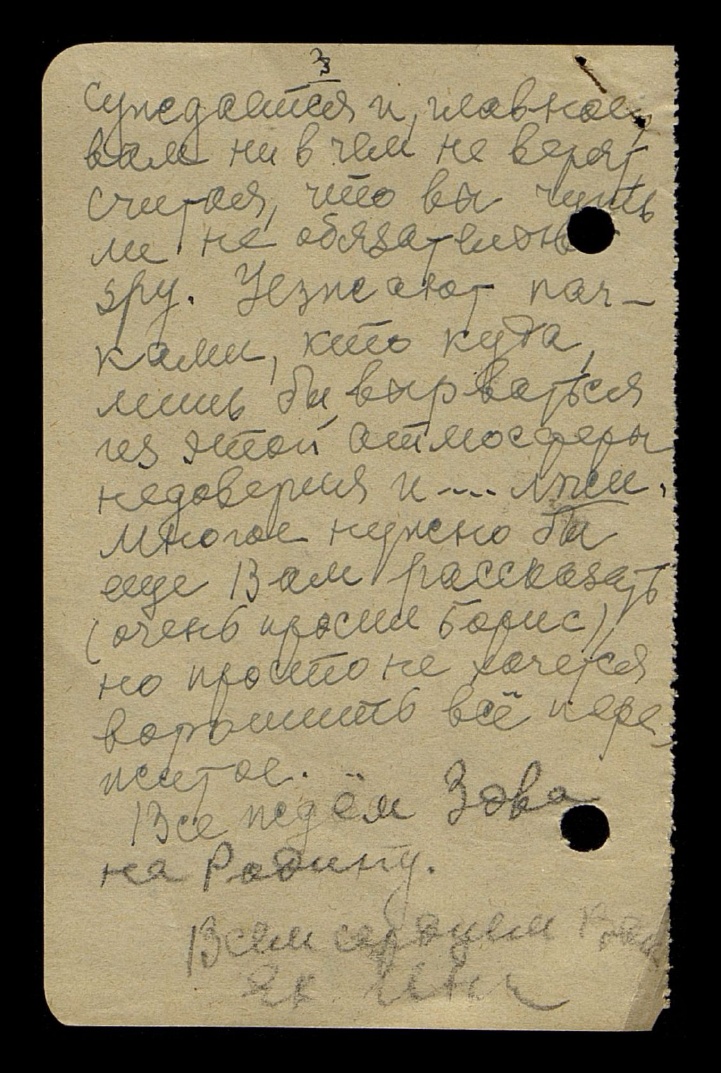 3
суждается и, главное,
вам ни в чем не верят,
считая, что вы чуть
ли не обязательно
spy. Уезжают пач-
ками, кто куда,
лишь бы вырваться
из этой атмосферы
недоверия и --- лжи.
Многое нужно бы
еще Вам рассказать
(очень просил Борис),
но просто не хочется
ворошить всё пере-
житое.
Все ждём Зова
на Родину.
Всем сердцем
Ек.